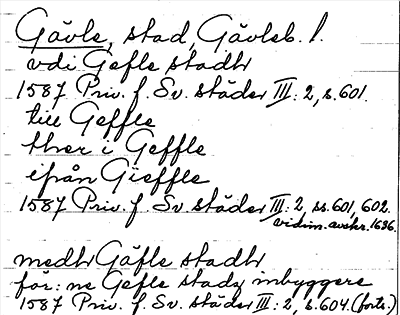 Gävle, stad, Gävleb. l.
vdi Gefle stadh
1587 Priv. f. Sv. städer III: 2, s. 601.
till Geffle
ther i Geffle
ifrån Gieffle
1587 Priv. f. Sv. städer III: 2 ss. 601, 602.
vidim. avskr. 1636.
medh Gäfle stadh
för: ne Gefle stadz inbyggere
1587 Priv. f. Sv. städer III: 2, s. 604. (forts.)